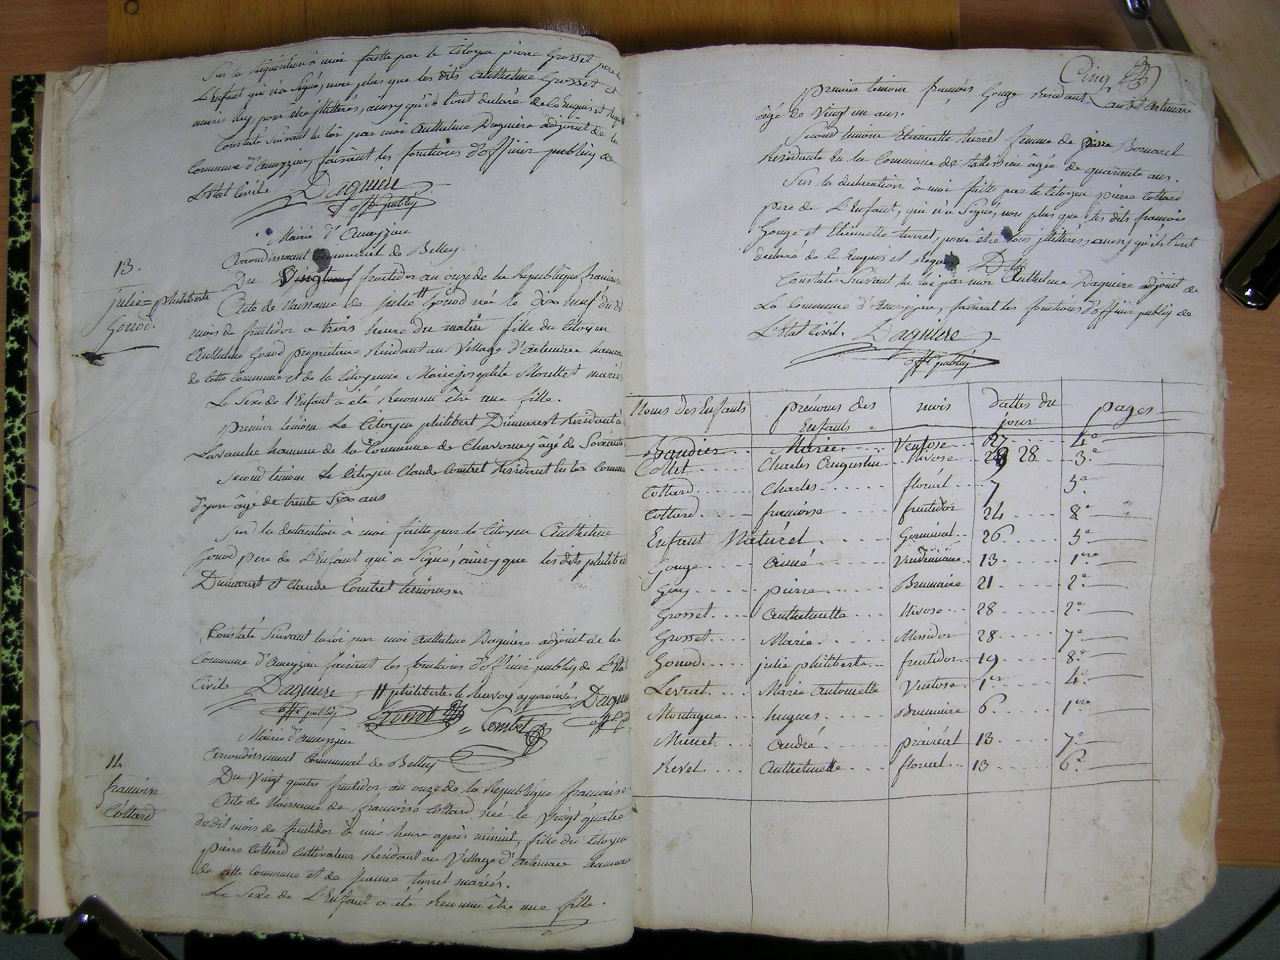 Sur la réquisition à moi faitte par le Citoyen pierre Grosset pere de
L'Enfant qui n'a signé, non plus que les dits anthelme Grosset et
pour être illétérés, ainsy qu'ils l'ont declaré de ce Enquis et Requis
Constaté suivant la loi par moi Anthelme Daguiere adjoint de la
Commune d'Ameyzieu, faisant les fonctions d'officier public de
L'Etat Civile Daguiere
offr public
Mairie d'Ameyzieu
Arrondissement Communal de Belley
13.
julie=philiberte
Gonod.
Du Vingt fructidor an onze de la République française
Acte de Naissance de julie # Gonod née le dix neuf du dt
mois de fructidor a trois heure du matin fille du Citoyen
Anthelme Gonod propriétaire Résidant au Village d'Artemare hameau
de cette commune et de la Citoyenne Marie josephte Morettet mariés
Le Sexe de l'Enfant a été Reconnu être une fille.
premier temoin Le Citoyen philibert Dumarest Résidant à
Lavanche hameau de la Commune de Chavornay âgé de
Second temoin Le Citoyen Claude Combet Résidant en la Commune
d'yon âgé de trente Six ans
Sur la declaration à moi faitte par le Citoyen Anthelme
Gonod pere de L'Enfant qui a Signé, ainsy que les dits philibert
Dumarest et Claude Combet temoins
Constaté Suivant la loi par moi anthelme Daguiere adjoint de la
Commune d'Ameyzieu faisant les fonctions d'officier public de L'Etat
Civile Daguiere # philiberte le Renvoy approuvé Daguiere
offr public Gonod Combet
Mairie d'Ameyzieu
Arrondissement Communal de Belley
14
francoise
Cottard
Du Vingt quatre fructidor an onze de la République française
Acte de Naissance de francoise Cottard née le Vingt quatre
dudit mois de fructidor à une heure après minuit, fille du Citoyen
pierre Cottard Cultivateur Résidant au Village d'Artemare hameau
de cette commune et de jeanne turrel mariés.
Le Sexe de L'Enfant a été Reconnu être une fille.
Cinq
premier temoin françois Gouge Résidant audit Artemare
âgé de Vingt un ans.
Second temoin Etiennette turrel femme de pierre Bornard
Résidente en la Commune de Talissieu âgée de quarante ans.
Sur la declaration à moi faitte par le Citoyen pierre Cottard
pere de L'Enfant, qui n'a Signé, non plus que les dits francois
Gouge et Etiennette turrel, pour être tous illétérés, ainsy qu'ils l'ont
declaré de ce Enquis et Requis
Constaté Suivant la loi par moi Anthelme Daguiere adjoint de
La Commune d'Ameyzieu, faisant les fonctions d'officier public de
L'Etat Civil. Daguiere
offr public
Noms des Enfants prénoms des Enfants mois dattes du jour pages
Marie Ventose 27 4e
Collet Charles Augustin Nivose 28 3e
Cottard Charles floréal 7 5e
Cottard francoise fructidor 24 8e
Enfant Naturel Germinal 26 5e
Gouge Aimé Vendémiaire 13 1ere
Guy pierre Brumaire 21 2e
Grosset Anthelmette Nivose 28 2e
Grosset Marie Messidor 28 7e
Gonod julie philiberte fructidor 19 8e
Levrat Marie Antoinette Ventose 1er 4e
Montagne hugues Brumaire 6 1ere
André prairéal 13 7e
Revel Anthelmette floréal 13 6e